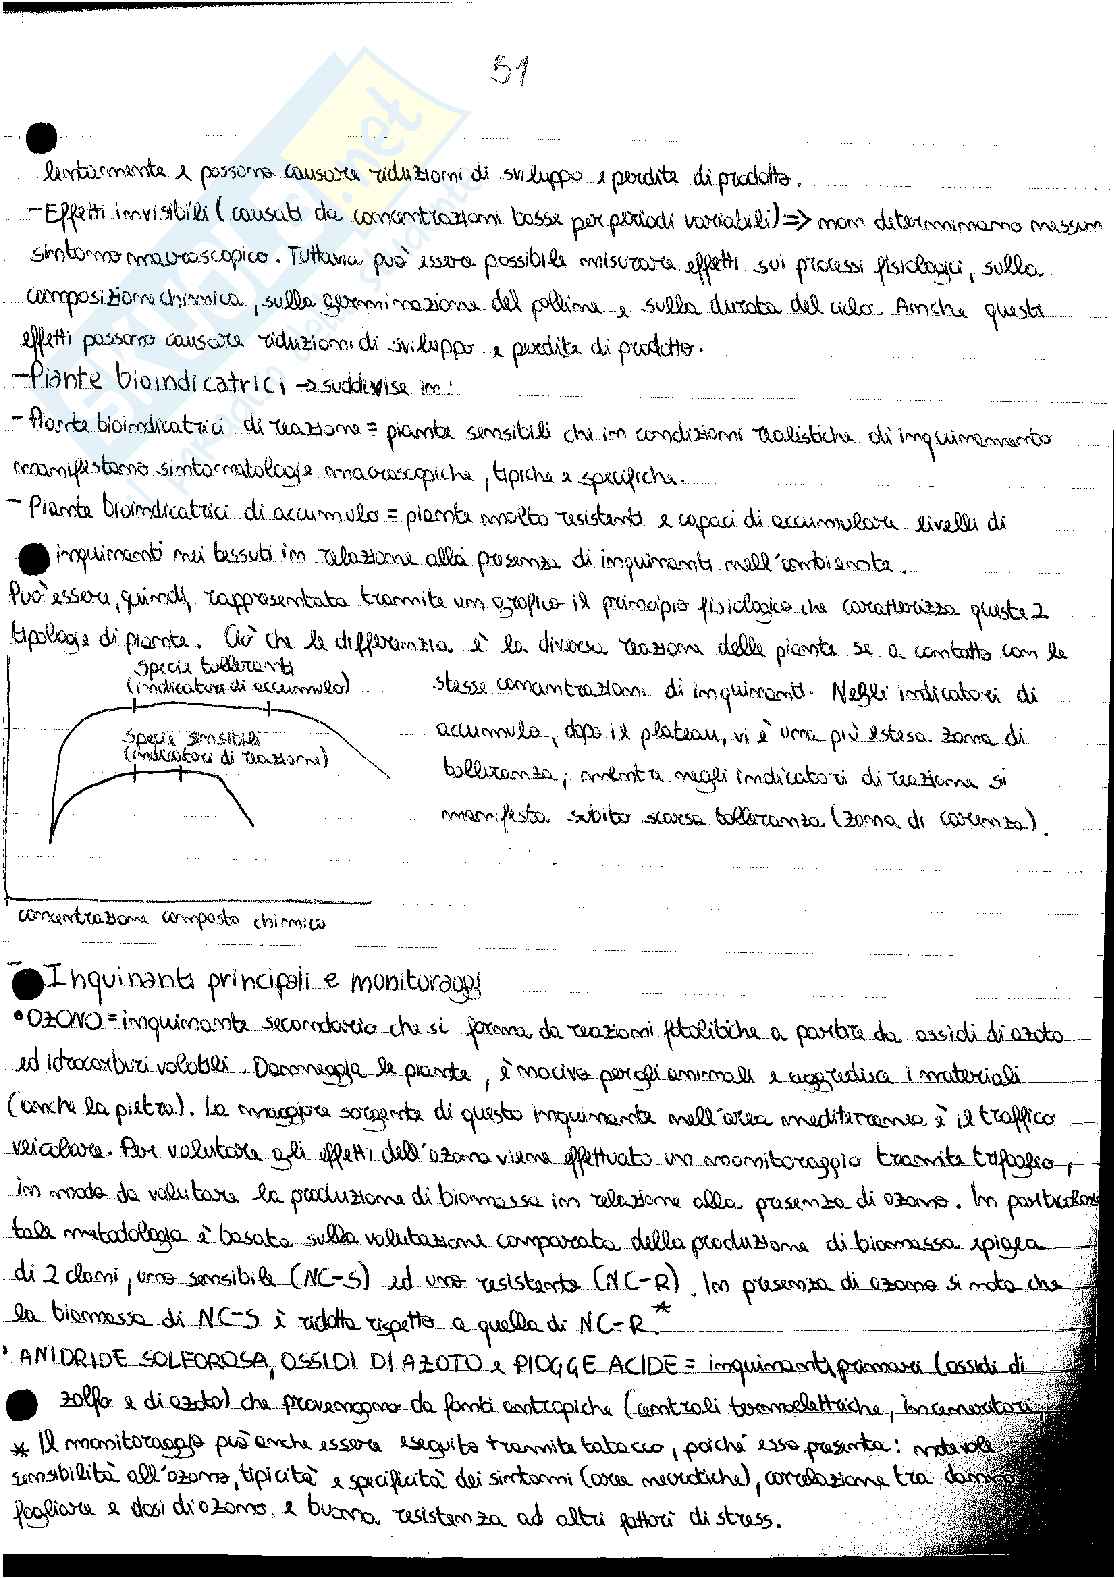 51
lentamente e possono causare riduzioni di sviluppo e perdite di prodotto.
- Effetti invisibili (causati da concentrazioni basse per periodi variabili) => non determinano nessun
sintomo macroscopico. Tuttavia può essere possibile misurare effetti sui processi fisiologici, sulla
composizione chimica, sulla germinazione del polline e sulla durata del ciclo. Anche questi
effetti possono causare riduzioni di sviluppo e perdite di prodotto.
- Piante bioindicatrici → suddivise in:
- Piante bioindicatrici di reazione = piante sensibili che in condizioni realistiche di inquinamento
manifestano sintomatologie macroscopiche, tipiche e specifiche.
- Piante bioindicatrici di accumulo = piante molto resistenti e capaci di accumulare livelli di
inquinanti nei tessuti in relazione alla presenza di inquinanti nell'ambiente.
Può essere, quindi, rappresentato tramite un grafico il principio fisiologico che caratterizza queste 2
tipologie di piante. Ciò che le differenzia è la diversa reazione delle piante se a contatto con le
stesse concentrazioni di inquinanti. Negli indicatori di
accumulo, dopo il plateau, vi è una più estesa zona di
tolleranza, mentre negli indicatori di reazione si
manifesta subito scarsa tolleranza (zona di carenza).
Specie tolleranti
(indicatori di accumulo)
Specie sensibili
(indicatori di reazione)
concentrazione composto chimico
Inquinanti principali e monitoraggi
• OZONO = inquinante secondario che si forma da reazioni fotolitiche a partire da ossidi di azoto
ed idrocarburi volatili. Danneggia le piante, è nocivo per gli animali e aggredisce i materiali
(anche la pietra). La maggiore sorgente di questo inquinante nell'area mediterranea è il traffico
veicolare. Per valutare gli effetti dell'ozono viene effettuato un monitoraggio tramite trifoglio,
in modo da valutare la produzione di biomassa in relazione alla presenza di ozono. In particolare
tale metodologia è basata sulla valutazione comparata della produzione di biomassa epigea
di 2 cloni, uno sensibile (NC-S) ed uno resistente (NC-R). In presenza di ozono si nota che
la biomassa di NC-S è ridotta rispetto a quella di NC-R.*
• ANIDRIDE SOLFOROSA, OSSIDI DI AZOTO e PIOGGE ACIDE = inquinanti primari (ossidi di
zolfo e di azoto) che provengono da fonti antropiche (centrali termoelettriche, inceneritori,
* Il monitoraggio può anche essere eseguito tramite tabacco, poiché esso presenta: notevole
sensibilità all'ozono, tipicità e specificità dei sintomi (aree necrotiche), correlazione tra danno
fogliare e dosi di ozono e buona resistenza ad altri fattori di stress.